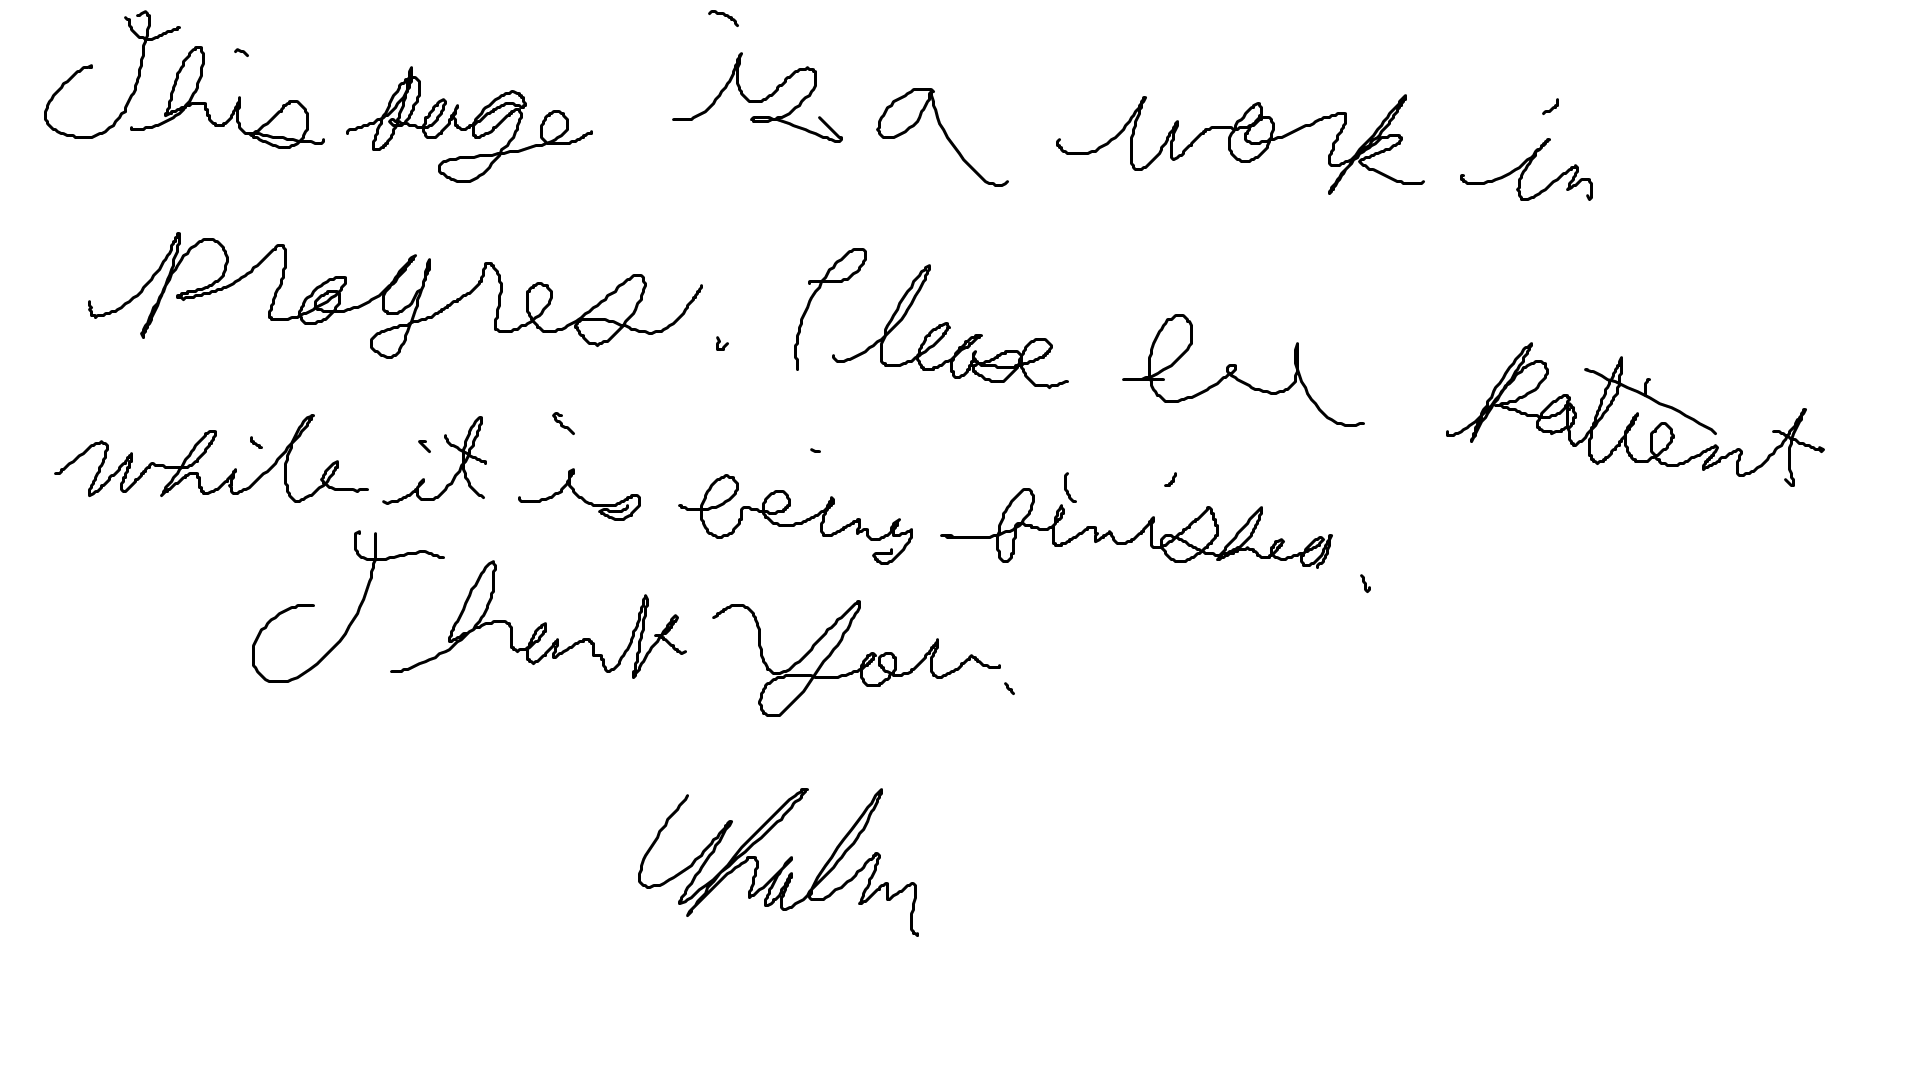 This page is a work in
progres. Please be patient
while it is being finished.
Thank You.